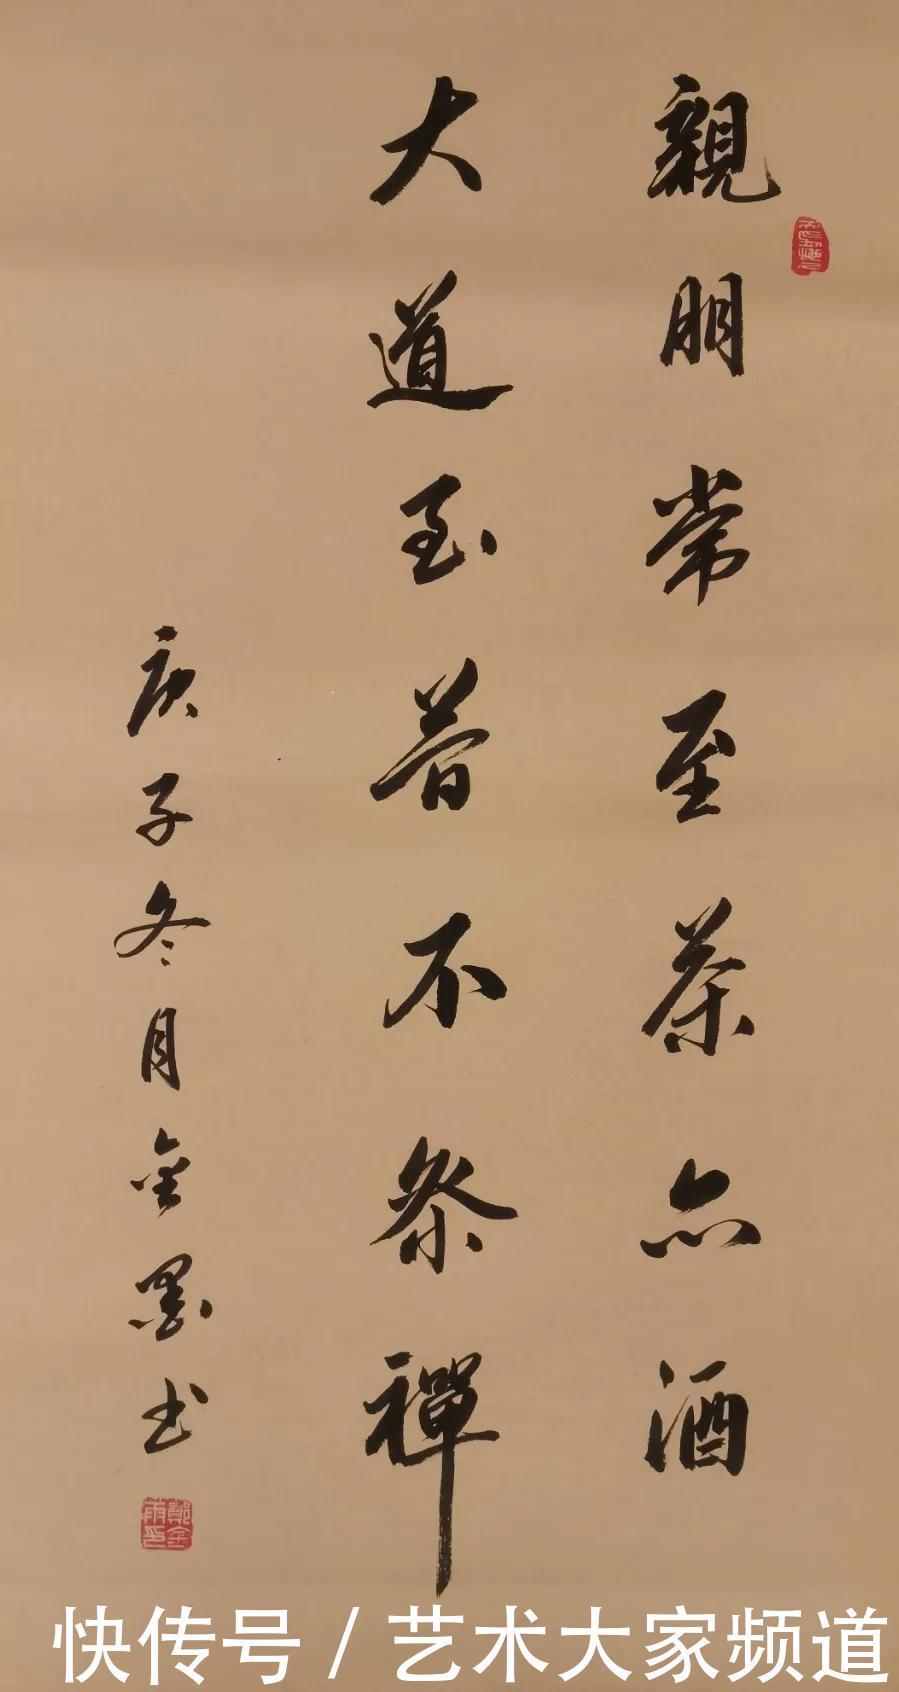 親朋常至茶亦酒
大道至普不参禪
庚子冬月金墨书
快传号/艺术大家频道